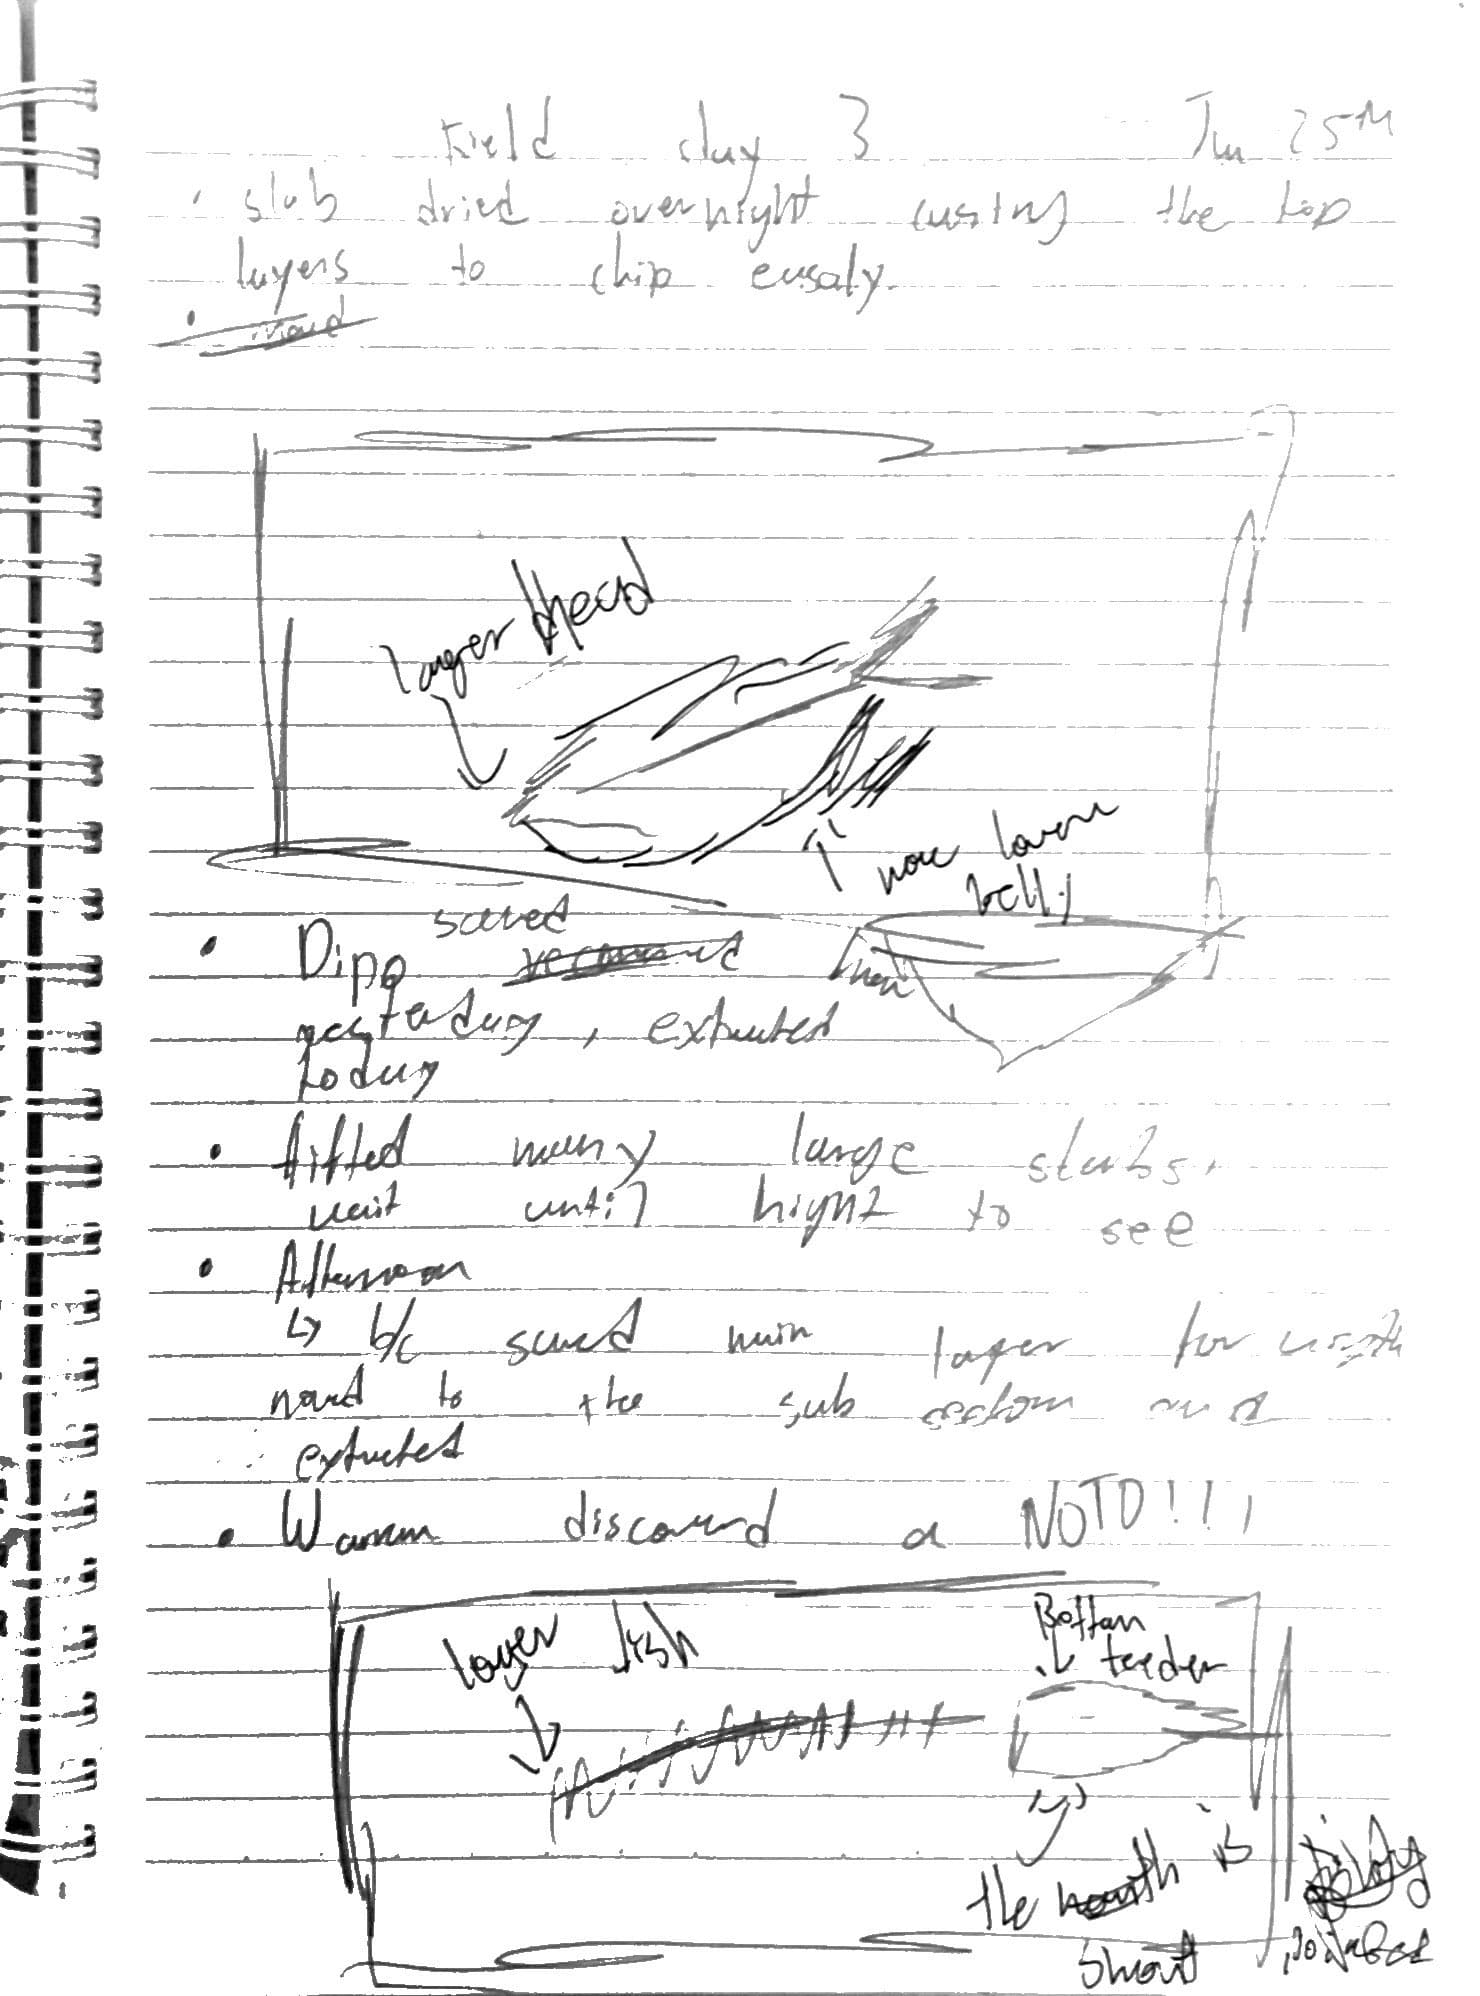 Field day 3 Jun 25th
• slab dried overnight causing the top
layers to chip easaly.
larger head
more lower
belly
• Diplo saved
yesterday, extracted
today
• lifted many large slabs,
wait until night to see
• Afternoon
↳ b/c saved main layer for
moved to the sub section and
extracted
• discoverd a NOTO!!!
layer fish
Bottom
feeder
the mouth is